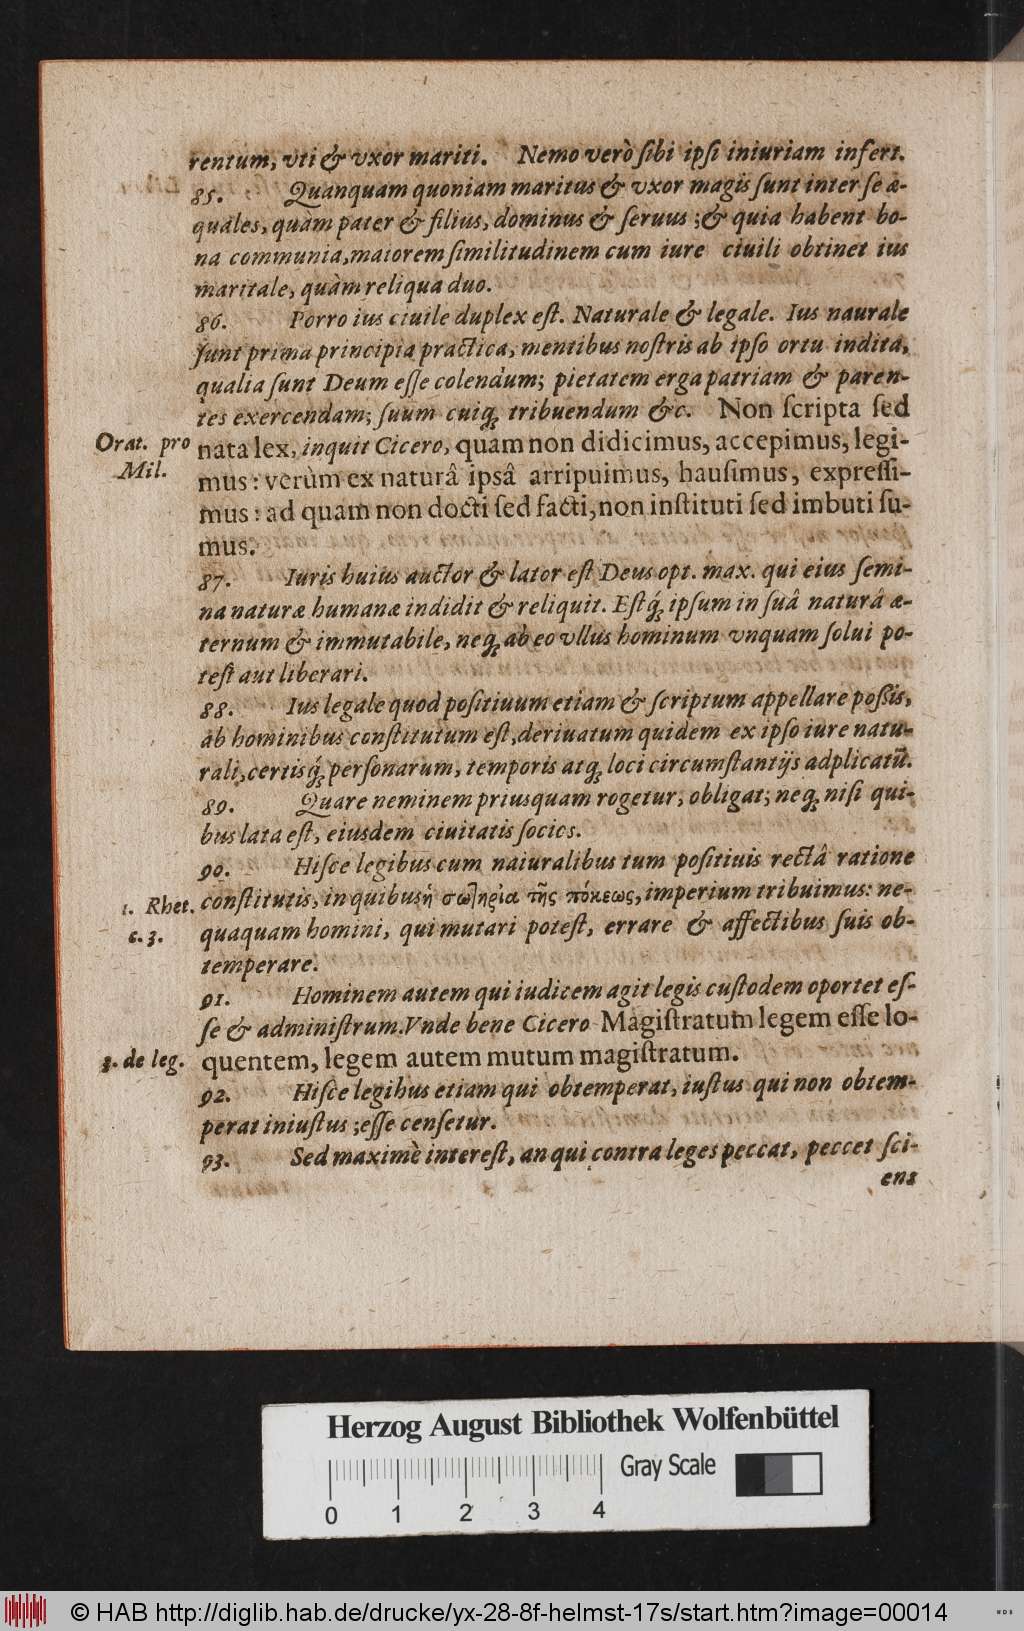 rentum, vti & vxor mariti. Nemo verò ſibi ipſi iniuriam infert.
85. Quanquam quoniam maritus & vxor magis ſunt inter ſe æ-
quales, quàm pater & filius, dominus & ſeruus ;& quia habent bo-
na communia, maiorem ſimilitudinem cum iure ciuili obtinet ius
maritale, quàm reliqua duo.
86. Porro ius ciuile duplex eſt. Naturale & legale. Ius naurale
ſunt prima principia practica, mentibus noſtris ab ipſo ortu indita,
qualia ſunt Deum eſſe colendum; pietatem erga patriam & paren-
tes exercendam; ſuum cuiq; tribuendum &c. Non ſcripta ſed
Orat. pro
Mil.
nata lex, inquit Cicero, quam non didicimus, accepimus, legi-
mus: verùm ex naturâ ipsâ arripuimus, hauſimus, expreſſi-
mus: ad quam non docti ſed facti, non inſtituti ſed imbuti ſu-
mus.
87. Iuris huius auctor & lator eſt Deus opt. max. qui eius ſemi-
na naturæ humanæ indidit & reliquit. Eſtq́; ipſum in ſuâ naturâ æ-
ternum & immutabile, neq; ab eo vllus hominum vnquam ſolui po-
teſt aut liberari.
88. Ius legale quod poſitiuum etiam & ſcriptum appellare poßis,
ab hominibus conſtitutum eſt, deriuatum quidem ex ipſo iure natu-
rali, certisq́; perſonarum, temporis atq; loci circumſtantijs adplicatū.
89. Quare neminem priusquam rogetur, obligat; neq; niſi qui-
bus lata eſt, eiusdem ciuitatis ſocios.
90. Hiſce legibus cum naiuralibus tum poſitiuis rectâ ratione
1. Rhet.
c. 3.
conſtitutis, in quibus ἡ σωτηρία τῆς πόλεως, imperium tribuimus: ne-
quaquam homini, qui mutari poteſt, errare & affectibus ſuis ob-
temperare.
91. Hominem autem qui iudicem agit legis cuſtodem oportet eſ-
ſe & adminiſtrum. Vnde bene Cicero Magiſtratum legem eſſe lo-
3. de leg.
quentem, legem autem mutum magiſtratum.
92. Hiſce legibus etiam qui obtemperat, iuſtus qui non obtem-
perat iniuſtus ;eſſe cenſetur.
93. Sed maximè intereſt, an qui contra leges peccat, peccet ſci-
ens
Herzog August Bibliothek Wolfenbüttel
Gray Scale
0 1 2 3 4
© HAB http://diglib.hab.de/drucke/yx-28-8f-helmst-17s/start.htm?image=00014